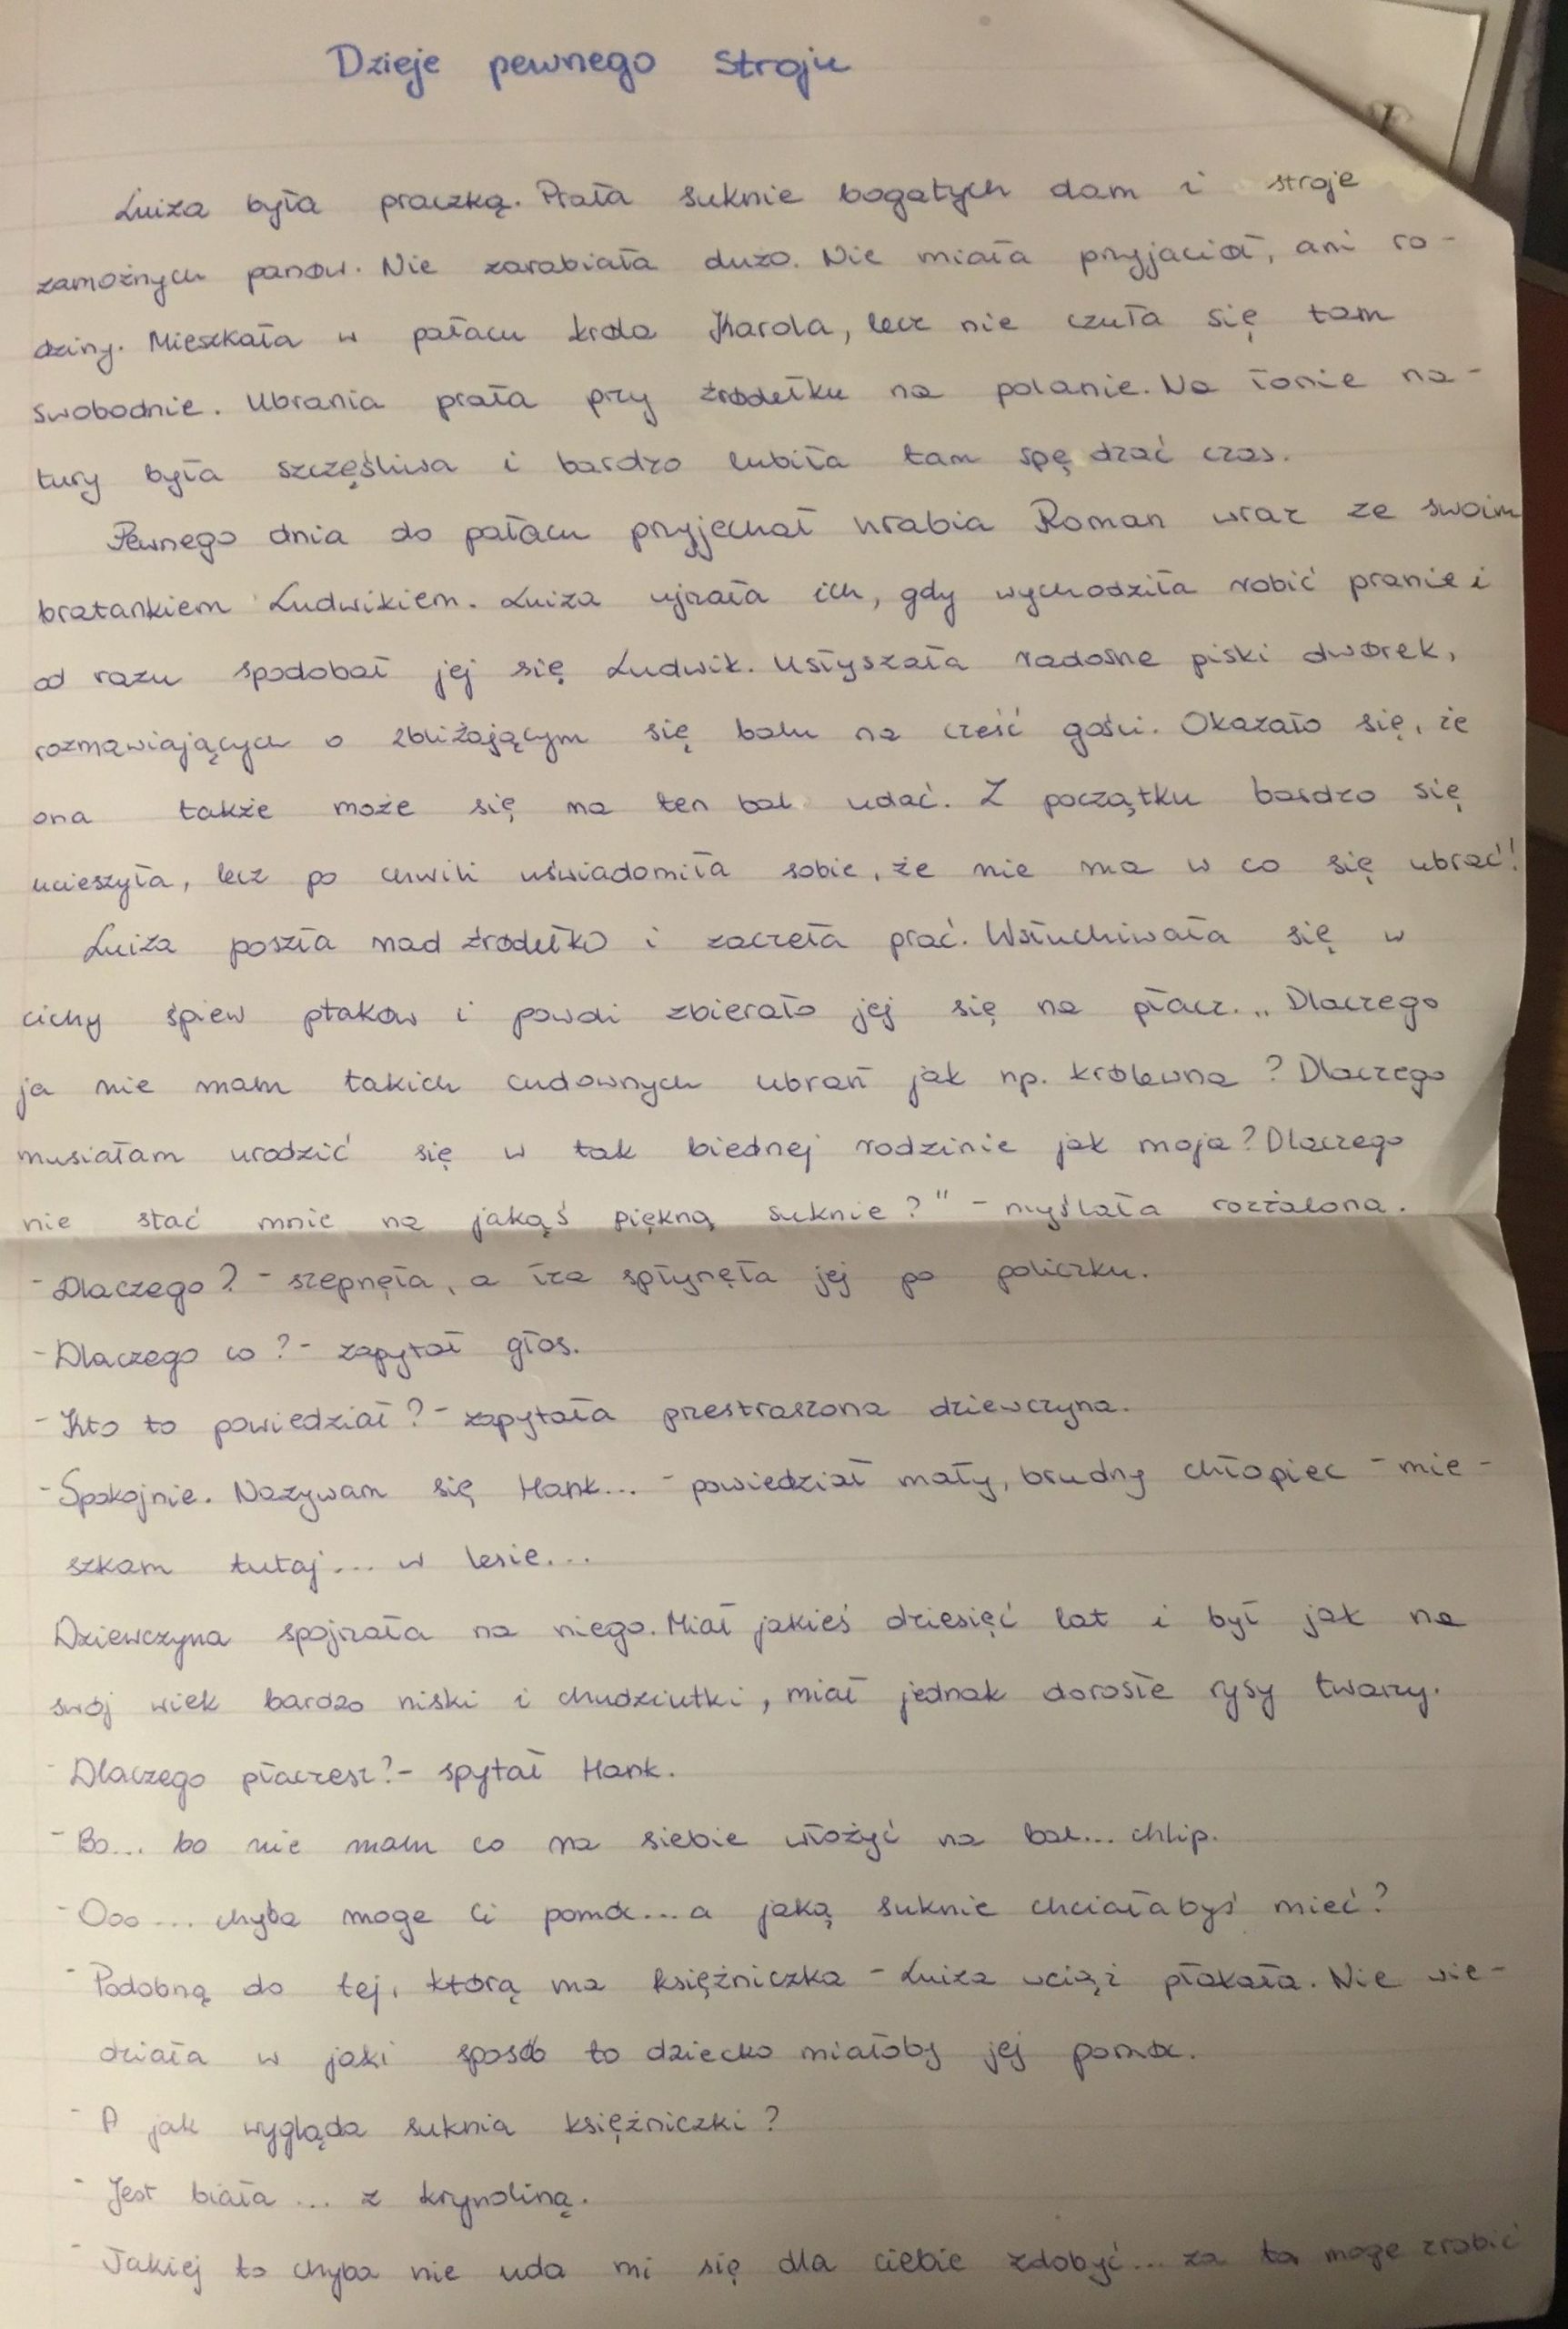 Dzieje pewnego stroju
Luiza była praczką. Prała suknie bogatych dam i stroje
zamożnych panów. Nie zarabiała dużo. Nie miała przyjaciół, ani ro-
dziny. Mieszkała w pałacu króla Karola, lecz nie czuła się tam
swobodnie. Ubrania prała przy źródełku na polanie. Na łonie na-
tury była szczęśliwa i bardzo lubiła tam spędzać czas.
Pewnego dnia do pałacu przyjechał hrabia Roman wraz ze swoim
bratankiem Ludwikiem. Luiza ujrzała ich, gdy wychodziła robić pranie i
od razu spodobał jej się Ludwik. Usłyszała radosne piski dwórek,
rozmawiających o zbliżającym się balu na cześć gości. Okazało się, że
ona także może się na ten bal udać. Z początku bardzo się
ucieszyła, lecz po chwili uświadomiła sobie, że nie ma w co się ubrać!
Luiza poszła nad źródełko i zaczeła prać. Wsłuchiwała się w
cichy śpiew ptaków i powoli zbierało jej się na płacz. „Dlaczego
ja nie mam takich cudownych ubrań jak np. królewna? Dlaczego
musiałam urodzić się w tak biednej rodzinie jak moja? Dlaczego
nie stać mnie na jakąś piękną suknie?" - myślała rozżalona.
- Dlaczego? - szepnęła, a łza spłynęła jej po policzku.
- Dlaczego co? - zapytał głos.
- Kto to powiedział? - zapytała przestraszona dziewczyna.
- Spokojnie. Nazywam się Hank... - powiedział mały, brudny chłopiec - mie-
szkam tutaj... w lesie...
Dziewczyna spojrzała na niego. Miał jakieś dziesięć lat i był jak na
swój wiek bardzo niski i chudziutki, miał jednak dorosłe rysy twarzy.
- Dlaczego płaczesz? - spytał Hank.
- Bo... bo nie mam co na siebie włożyć na bal... chlip.
- Ooo... chyba moge Ci pomóc... a jaką suknie chciałabyś mieć?
- Podobną do tej, którą ma księżniczka - Luiza wciąż płakała. Nie wie-
działa w jaki sposób to dziecko miałoby jej pomóc.
- A jak wygląda suknia księżniczki?
- Jest biała... z krynoliną.
- Takiej to chyba nie uda mi się dla ciebie zdobyć... za to moge zrobić